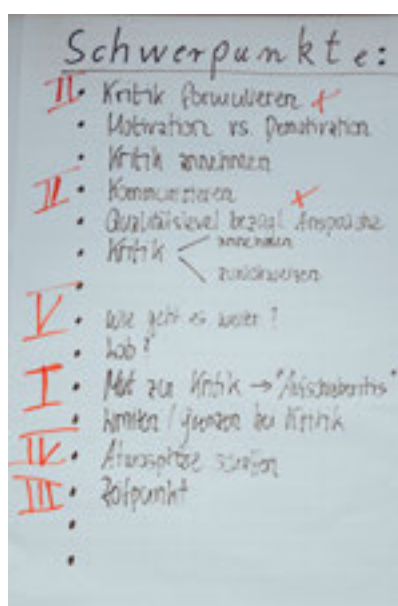 Schwerpunkte:
II • Kritik formulieren x
• Motivation vs. Demotivation
• Kritik annehmen
II • Kommunizieren x
• Qualitätslevel bezügl. Ansprache
• Kritik < annehmen
zurückweisen
•
V • Wie geht es weiter?
• Lob?
I • Mut zur Kritik → "Aufschieberitis"
• Limiten / Grenzen bei Kritik
IV • Atmosphäre schaffen
III • Zeitpunkt
•
•